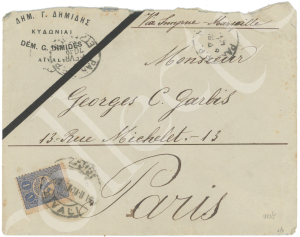 ΔΗΜ. Γ. ΔΗΜΙΔΗΣ
ΚΥΔΩΝΙΑΙ
DÉM. G. DIMIDÈS
Via Smyrne - Marseille
Monsieur
Georges C. Garbis
13. Rue Michelet. - 13
Paris